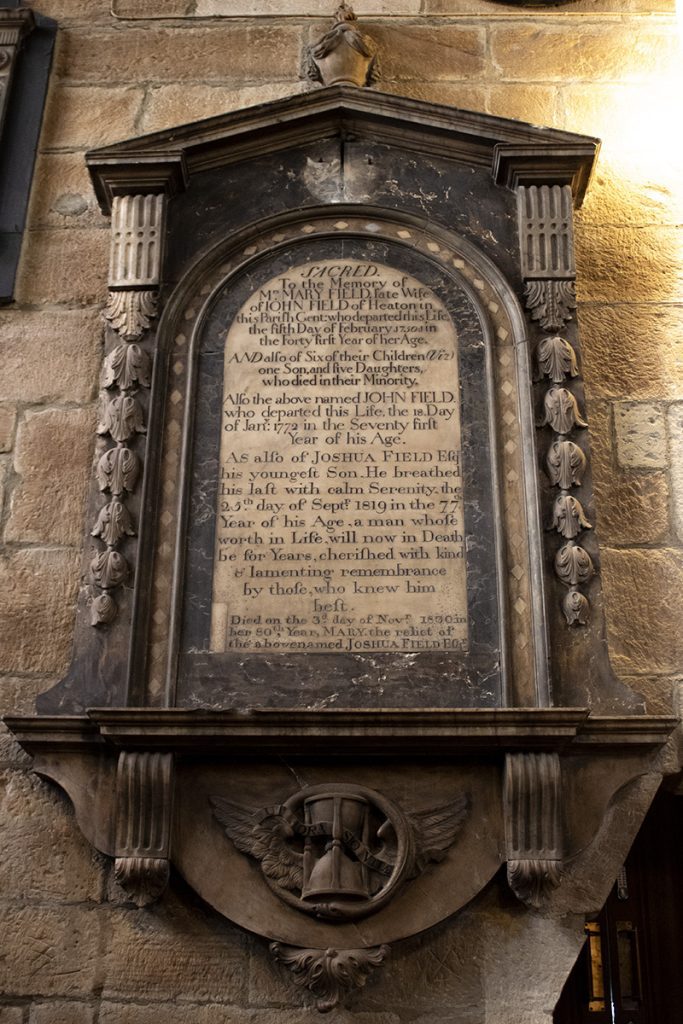 SACRED.
To the Memory of
Mrs MARY FIELD, late Wife
of JOHN FIELD of Heaton in
this Parish Gent: who departed this Life,
the fifth Day of February in
the Forty first Year of her Age.
AND also of Six of their Children (Viz)
one Son, and five Daughters,
who died in their Minority.
Also the above named JOHN FIELD.
who departed this Life, the 18. Day
of Jany: 1772 in the Seventy first
Year of his Age.
AS also of JOSHUA FIELD Esq
his youngest Son. He breathed
his last with calm Serenity. the
25th day of Septr 1819 in the 77
Year of his Age, a man whose
worth in Life, will now in Death
be for Years, cherished with kind
& lamenting remembrance
by those, who knew him
best.
Died on the 3d day of Novr 1830 in
her 80th Year, MARY. the relict of
the abovenamed JOSHUA FIELD Esq